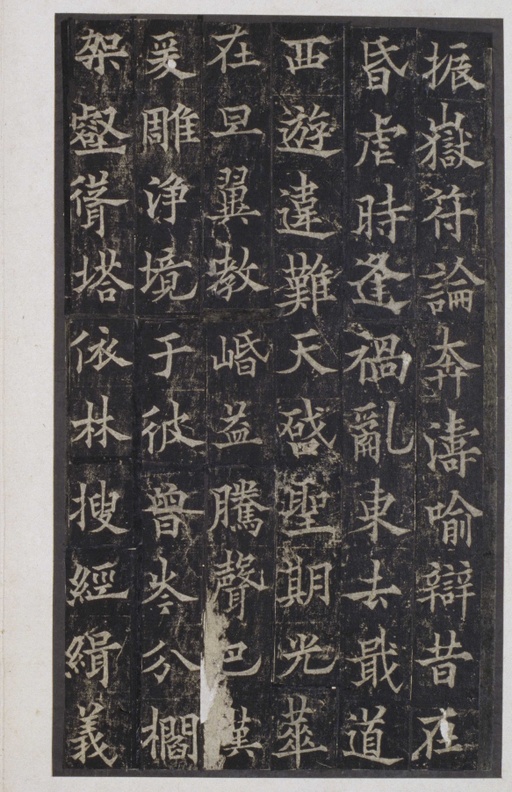 振嶽符論奔濤喻辯昔在
昏虐時逢禍亂東去戢道
西遊違難天啓聖期光華
在旦翼教㟭益騰聲巴漢
爰雕淨境于彼曾岑分櫩
架壑聳塔依林搜經緝義